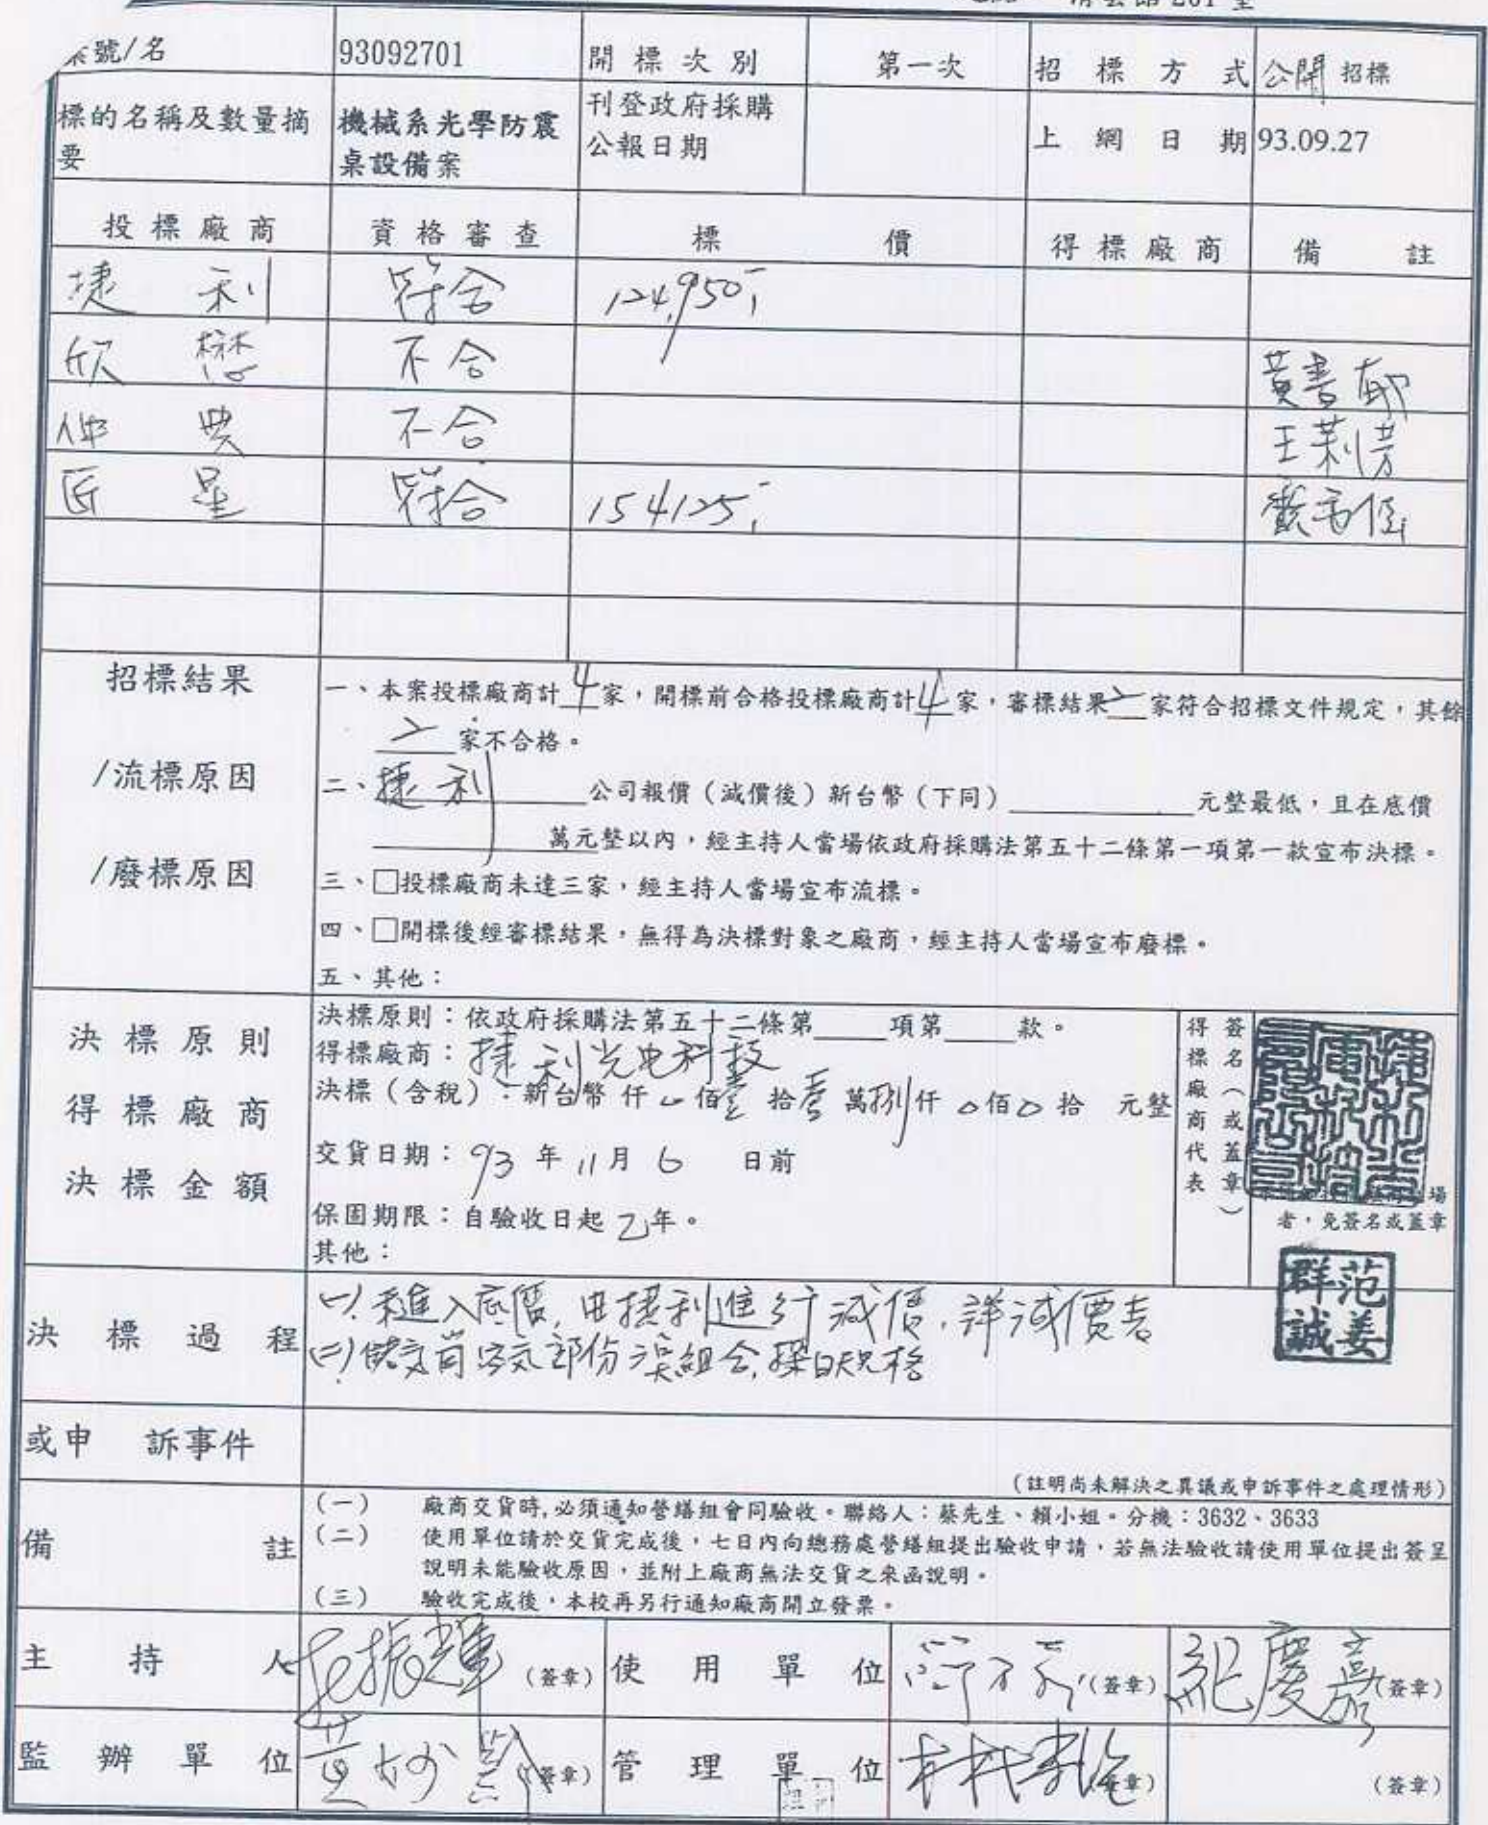 清雲館 201 室
號/名 93092701 開標次別 第一次 招標方式 公開 招標
標的名稱及數量摘要 機械系光學防震桌設備案 刊登政府採購公報日期 上網日期 93.09.27
投標廠商 資格審查 標價 得標廠商 備註
捷利 符合 124,950
欣懋 不合
不合 王莉芳
匠星 符合 154125
招標結果
/流標原因
/廢標原因
一、本案投標廠商計4家，開標前合格投標廠商計4家，審標結果2家符合招標文件規定，其餘
2家不合格。
二、捷利 公司報價（減價後）新台幣（下同）＿＿＿元整最低，且在底價
＿＿＿萬元整以內，經主持人當場依政府採購法第五十二條第一項第一款宣布決標。
三、□投標廠商未達三家，經主持人當場宣布流標。
四、□開標後經審標結果，無得為決標對象之廠商，經主持人當場宣布廢標。
五、其他：
決標原則
得標廠商
決標金額
決標原則：依政府採購法第五十二條第＿＿項第＿＿款。
得標廠商：捷利光電科技
決標（含稅）：新台幣 仟 0 佰壹 拾壹 萬捌仟 0佰0 拾 元整
交貨日期：93 年 11 月 6 日前
保固期限：自驗收日起 2年。
其他：
得標廠商代表
簽名（或蓋章）
場
者，免簽名或蓋章
范姜群誠
決標過程
(一)未進入底價,由捷利進行減價,詳減價表
或申訴事件
（註明尚未解決之異議或申訴事件之處理情形）
備註
（一） 廠商交貨時,必須通知營繕組會同驗收。聯絡人：蔡先生、賴小姐。分機：3632、3633
（二） 使用單位請於交貨完成後，七日內向總務處營繕組提出驗收申請，若無法驗收請使用單位提出簽呈
說明未能驗收原因，並附上廠商無法交貨之來函說明。
（三） 驗收完成後，本校再另行通知廠商開立發票。
主持人 （簽章） 使用單位 （簽章） 紀慶嘉（簽章）
監辦單位 （簽章） 管理單位 （簽章） （簽章）